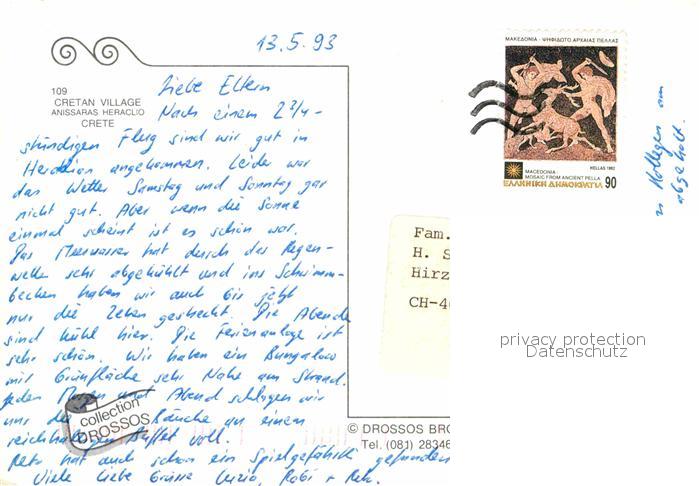 13.5.93
109
CRETAN VILLAGE
ANISSARAS HERACLIO
CRETE
Liebe Eltern
Nach einem 2 3/4-
stündigen Flug sind wir gut in
angekommen. Leider war
das Wetter Samstag und Sonntag gar
nicht gut. Aber wenn die Sonne
einmal scheint ist es schön war.
Das Meerwasser hat durch das Regen-
wetter sehr abgekühlt und ins Schwimm-
becken haben wir auch bis jetzt
nur die Zehen gestreckt. Die Abende
sind kühl hier. Die Ferienanlage ist
sehr schön. Wir haben ein Bungalow
mit Grünfläche sehr Nahe am Strand.
Jeden Morgen und Abend schlagen wir
uns die Bäuche an einem
reichhaltigen Buffet voll.
Reto hat auch schon ein Spielgefährte gefunden
Viele liebe Grüsse
collection
DROSSOS
© DROSSOS BRO
Tel. (081) 28346
ΜΑΚΕΔΟΝΙΑ · ΨΗΦΙΔΩΤΟ ΑΡΧΑΙΑΣ ΠΕΛΛΑΣ
HELLAS 1992
MACEDONIA
MOSAIC FROM ANCIENT PELLA
ΕΛΛΗΝΙΚΗ ΔΗΜΟΚΡΑΤΙΑ 90
Fam.
H. S
Hirz
CH-4
Kollegen am
abgeholt.
privacy protection
Datenschutz